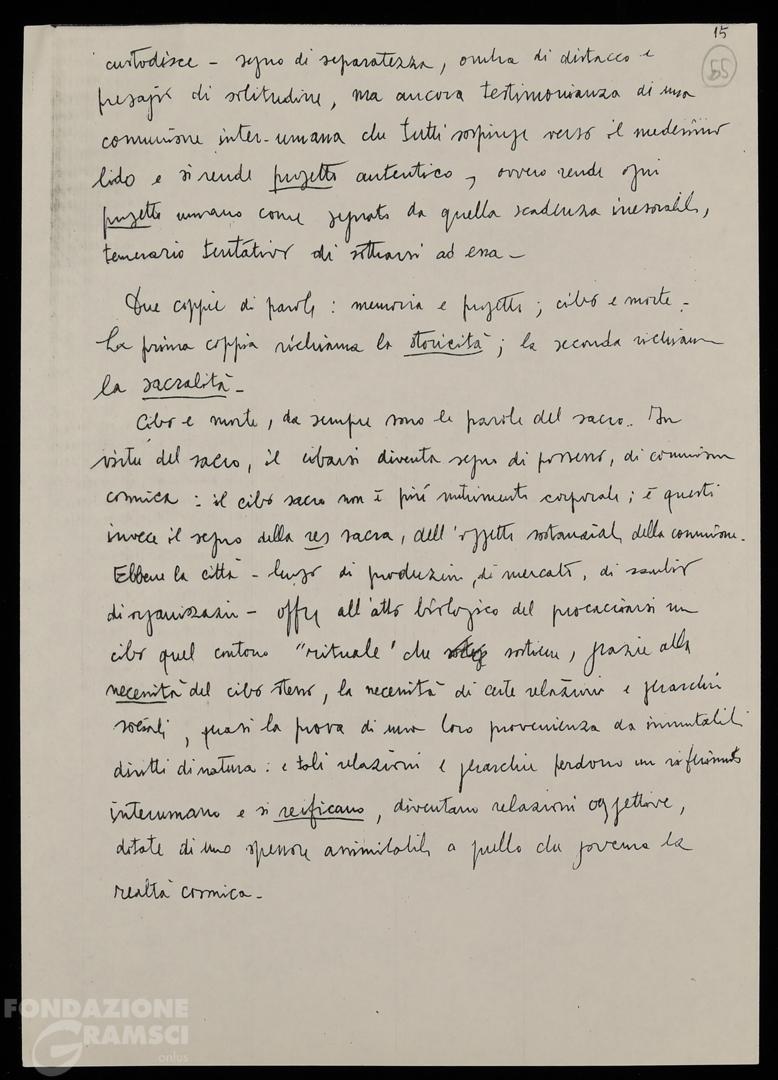 15
55
custodisce – segno di separatezza, ombra di distacco e
presagio di solitudine, ma ancora testimonianza di una
comunione inter-umana che tutti sospinge verso il medesimo
lido e si rende progetto autentico, ovvero rende ogni
progetto umano come segnato da quella scadenza inesorabile,
temerario tentativo di sottrarsi ad essa –
Due coppie di parole: memoria e progetto; cibo e morte –
La prima coppia richiama la storicità; la seconda richiama
la sacralità –
Cibo e morte, da sempre sono le parole del sacro. In
virtù del sacro, il cibarsi diventa segno di possesso, di comunione
cosmica: il cibo sacro non è più nutrimento corporale; è questi
invece il segno della res sacra, dell'oggetto sostanziale della comunione.
Ebbene la città – luogo di produzione, di mercato, di scambio
di organizzazione – offre all'atto biologico del procacciarsi un
cibo quel contorno "rituale" che sostiene, grazie alla
necessità del cibo stesso, la necessità di certe relazioni e gerarchie
sociali, quasi la prova di una loro provenienza da immutabili
diritti di natura: e tali relazioni e gerarchie perdono un riferimento
interumano e si reificano, diventano relazioni oggettive,
dotate di uno spessore assimilabile a quello che governa la
realtà cosmica –
FONDAZIONE
GRAMSCI
onlus